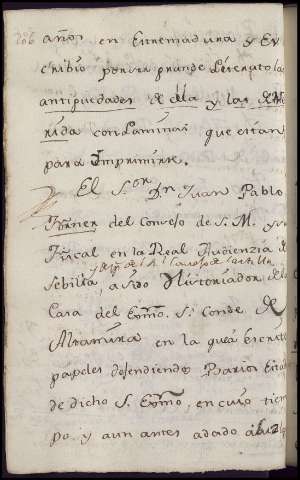 años en Extremadura y Ex
cribio por su grande Literatura las
antiguedades de ella y las de Me
rida con Laminas que estan
para Imprimirse.
El S.or Dn Juan Pablo
Forner del Consejo de S. M. y su
Fiscal en la Real Audienzia de
Sebilla, a sido Historiador de la
Casa del Exmo. Sr. Conde de
Altamira en la que à escrito
papeles defendiendo Barios Estados
de dicho S. Exmo, en cuio tiem
po, y aun antes a dado à luz